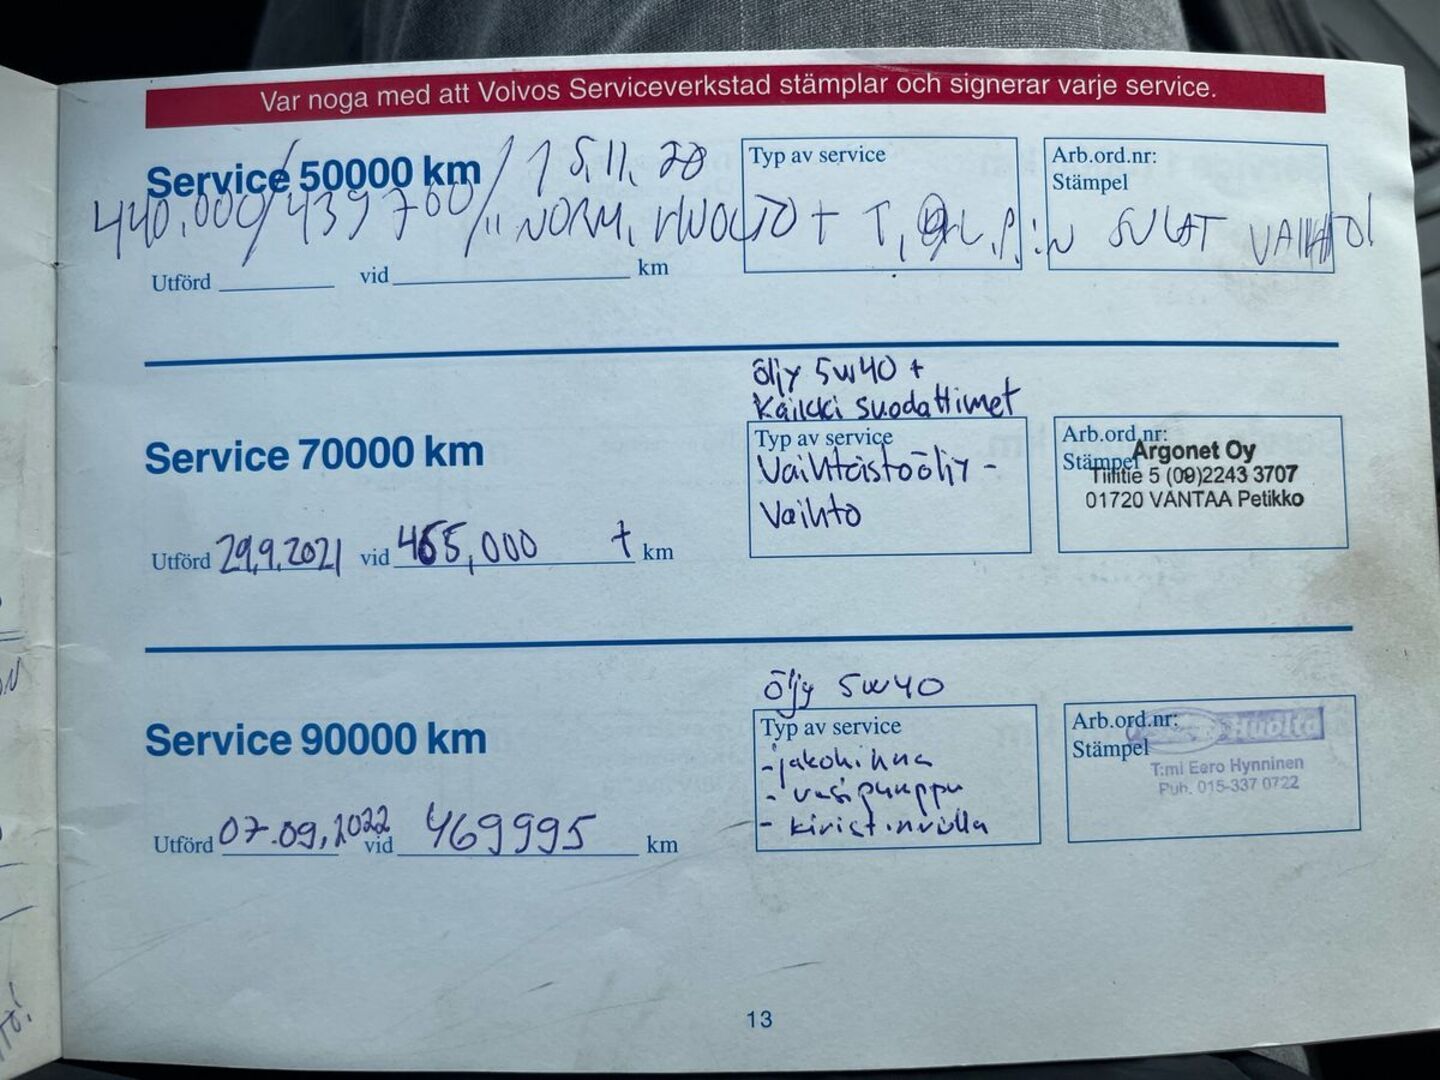 Var noga med att Volvos Serviceverkstad stämplar och signerar varje service.
Service 50000 km
15.11.20
Typ av service
Arb.ord.nr:
Stämpel
440.000/439700/ NORM. HUOLTO + T, :N SULAT VAIHTO!
Utförd vid km
öljy 5w40 +
Kaikki suodattimet
Service 70000 km
Typ av service
Vaihteistoöljy-
Vaihto
Arb.ord.nr:
Stämpel
Argonet Oy
Tiilitie 5 (09)2243 3707
01720 VANTAA Petikko
Utförd 29.9.2021 vid 455,000 t km
öljy 5w40
Service 90000 km
Typ av service
-jakohihna
- vesipumppu
- kiristinrulla
Arb.ord.nr:
Stämpel
Huolto
T:mi Eero Hynninen
Puh. 015-337 0722
Utförd 07.09.2022 vid 469995 km
13